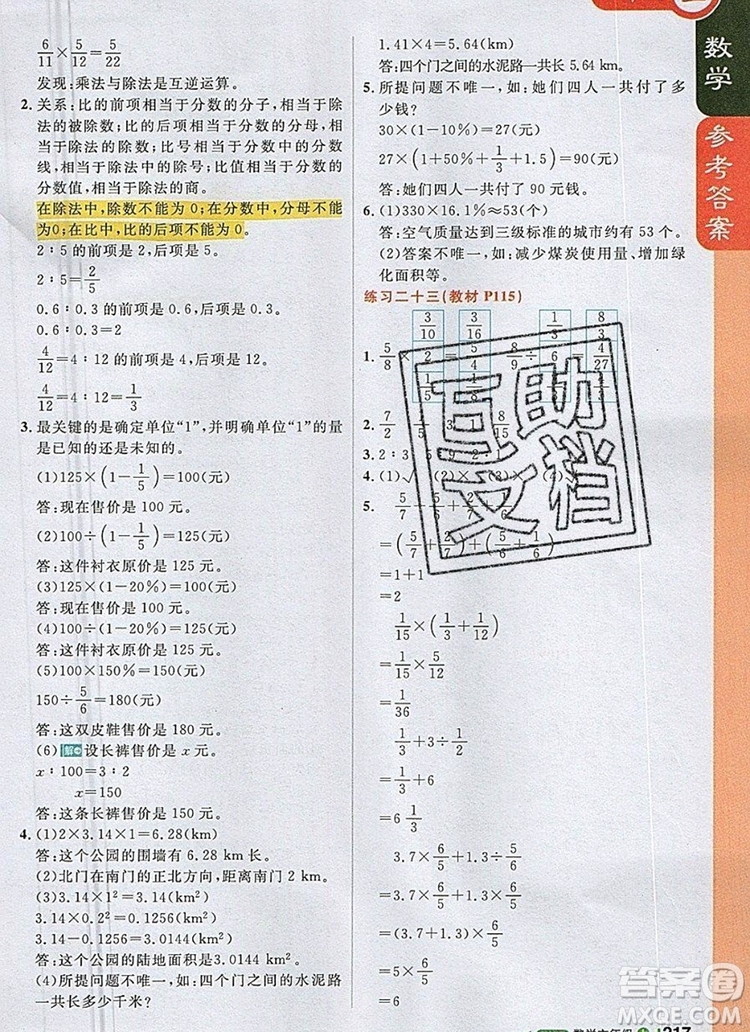 6/11×5/12=5/22
发现:乘法与除法是互逆运算。
2. 关系:比的前项相当于分数的分子,相当于除
法的被除数;比的后项相当于分数的分母,相当于除
法的除数;比号相当于分数的分数
线,相当于除法中的除号;比值相当于分数的
分数值,相当于除法的商。
在除法中,除数不能为 0;在分数中,分母不能
为0;在比中,比的后项不能为 0。
2∶5 的前项是 2,后项是 5。
2∶5=2/5
0.6∶0.3 的前项是 0.6,后项是 0.3。
0.6∶0.3=2
4/12=4∶12 的前项是 4,后项是 12。
4/12=4∶12=1/3
3. 最关键的是确定单位“1”,并明确单位“1”的量
是已知的还是未知的。
(1)125×(1-1/5)=100(元)
答:现在售价是 100 元。
(2)100÷(1-1/5)=125(元)
答:这件衬衣原价是 125 元。
(3)125×(1-20%)=100(元)
答:现在售价是 100 元。
(4)100÷(1-20%)=125(元)
答:这件衬衣原价是 125 元。
(5)100×150%=150(元)
150÷5/6=180(元)
答:这双皮鞋售价是 180 元。
(6)解 设长裤售价是 x 元。
x∶100=3∶2
x=150
答:这条长裤售价是 150 元。
4. (1)2×3.14×1=6.28(km)
答:这个公园的围墙有 6.28 km长。
(2)北门在南门的正北方向,距离南门 2 km。
(3)3.14×1²=3.14(km²)
3.14×0.2²=0.1256(km²)
3.14-0.1256=3.0144(km²)
答:这个公园的陆地面积是3.0144(km²)
(4)所提问题不唯一,如:四个门之间的水泥路
一共长多少千米?
1.41×4=5.64(km)
答:四个门之间的水泥路一共长 5.64 km。
5. 所提问题不唯一,如:她们四人一共付了多
少钱?
30×(1-10%)=27(元)
27×(1+50%+9/10+1)=
6. (1)330×16.1%≈53(个)
答:空气质量达到三级标准的城市约有 53 个。
(2)答案不唯一,如:减少煤炭使用量、增加绿
化面积等。
练习二十三(教材 P115)
3/10 3/16 1/3 8/3
1. 5/8
1/5 4/27
2. 7/2
3. 2∶3
4. (1)√
5.
=1+1
=2
1/15×(1/3+1/12)
=1/15×5/12
=1/36
=1/3+6
=6 1/3
3.7×6/5+1.3÷5/6
=3.7×6/5+1.3×6/5
=(3.7+1.3)×6/5
=5×6/5
=6
数学
参考答案
互助
文档
答案圈
MXQE.COM
217